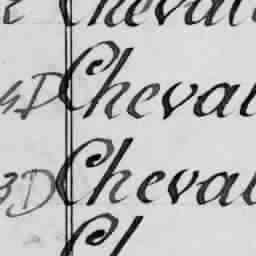 Cheval
4D Cheval
3D Cheval